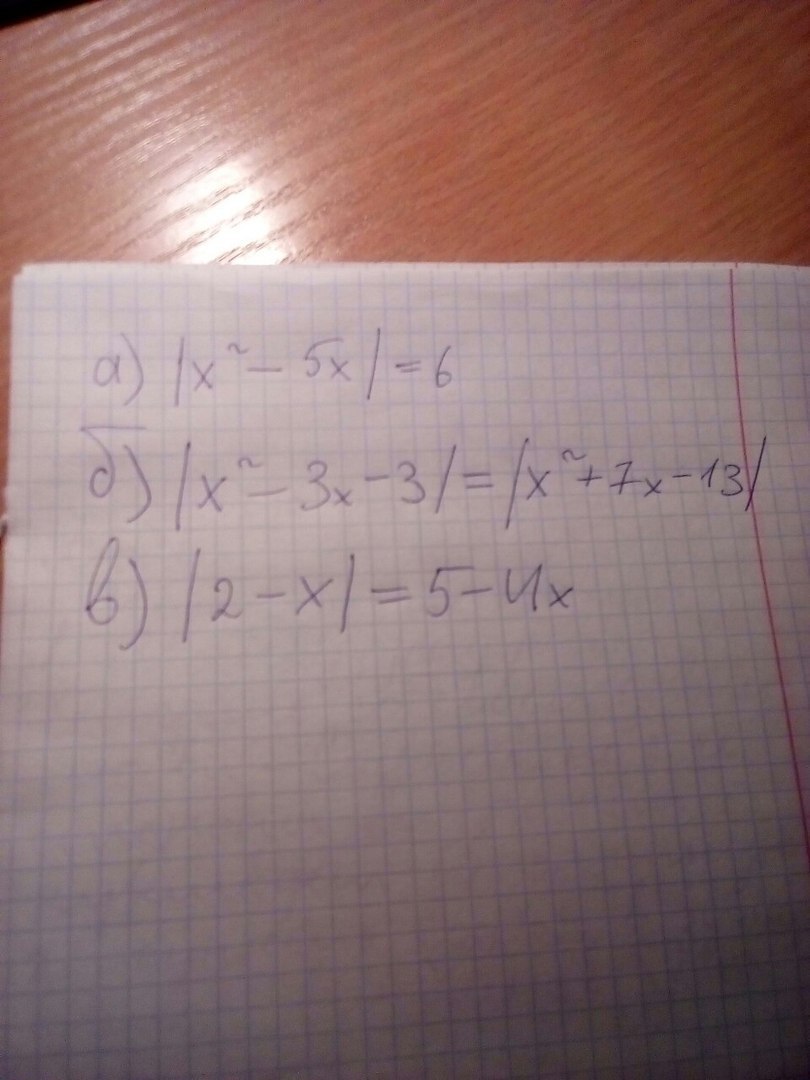 а) |x² - 5x| = 6
б) |x² - 3x - 3| = |x² + 7x - 13|
в) |2 - x| = 5 - 4x